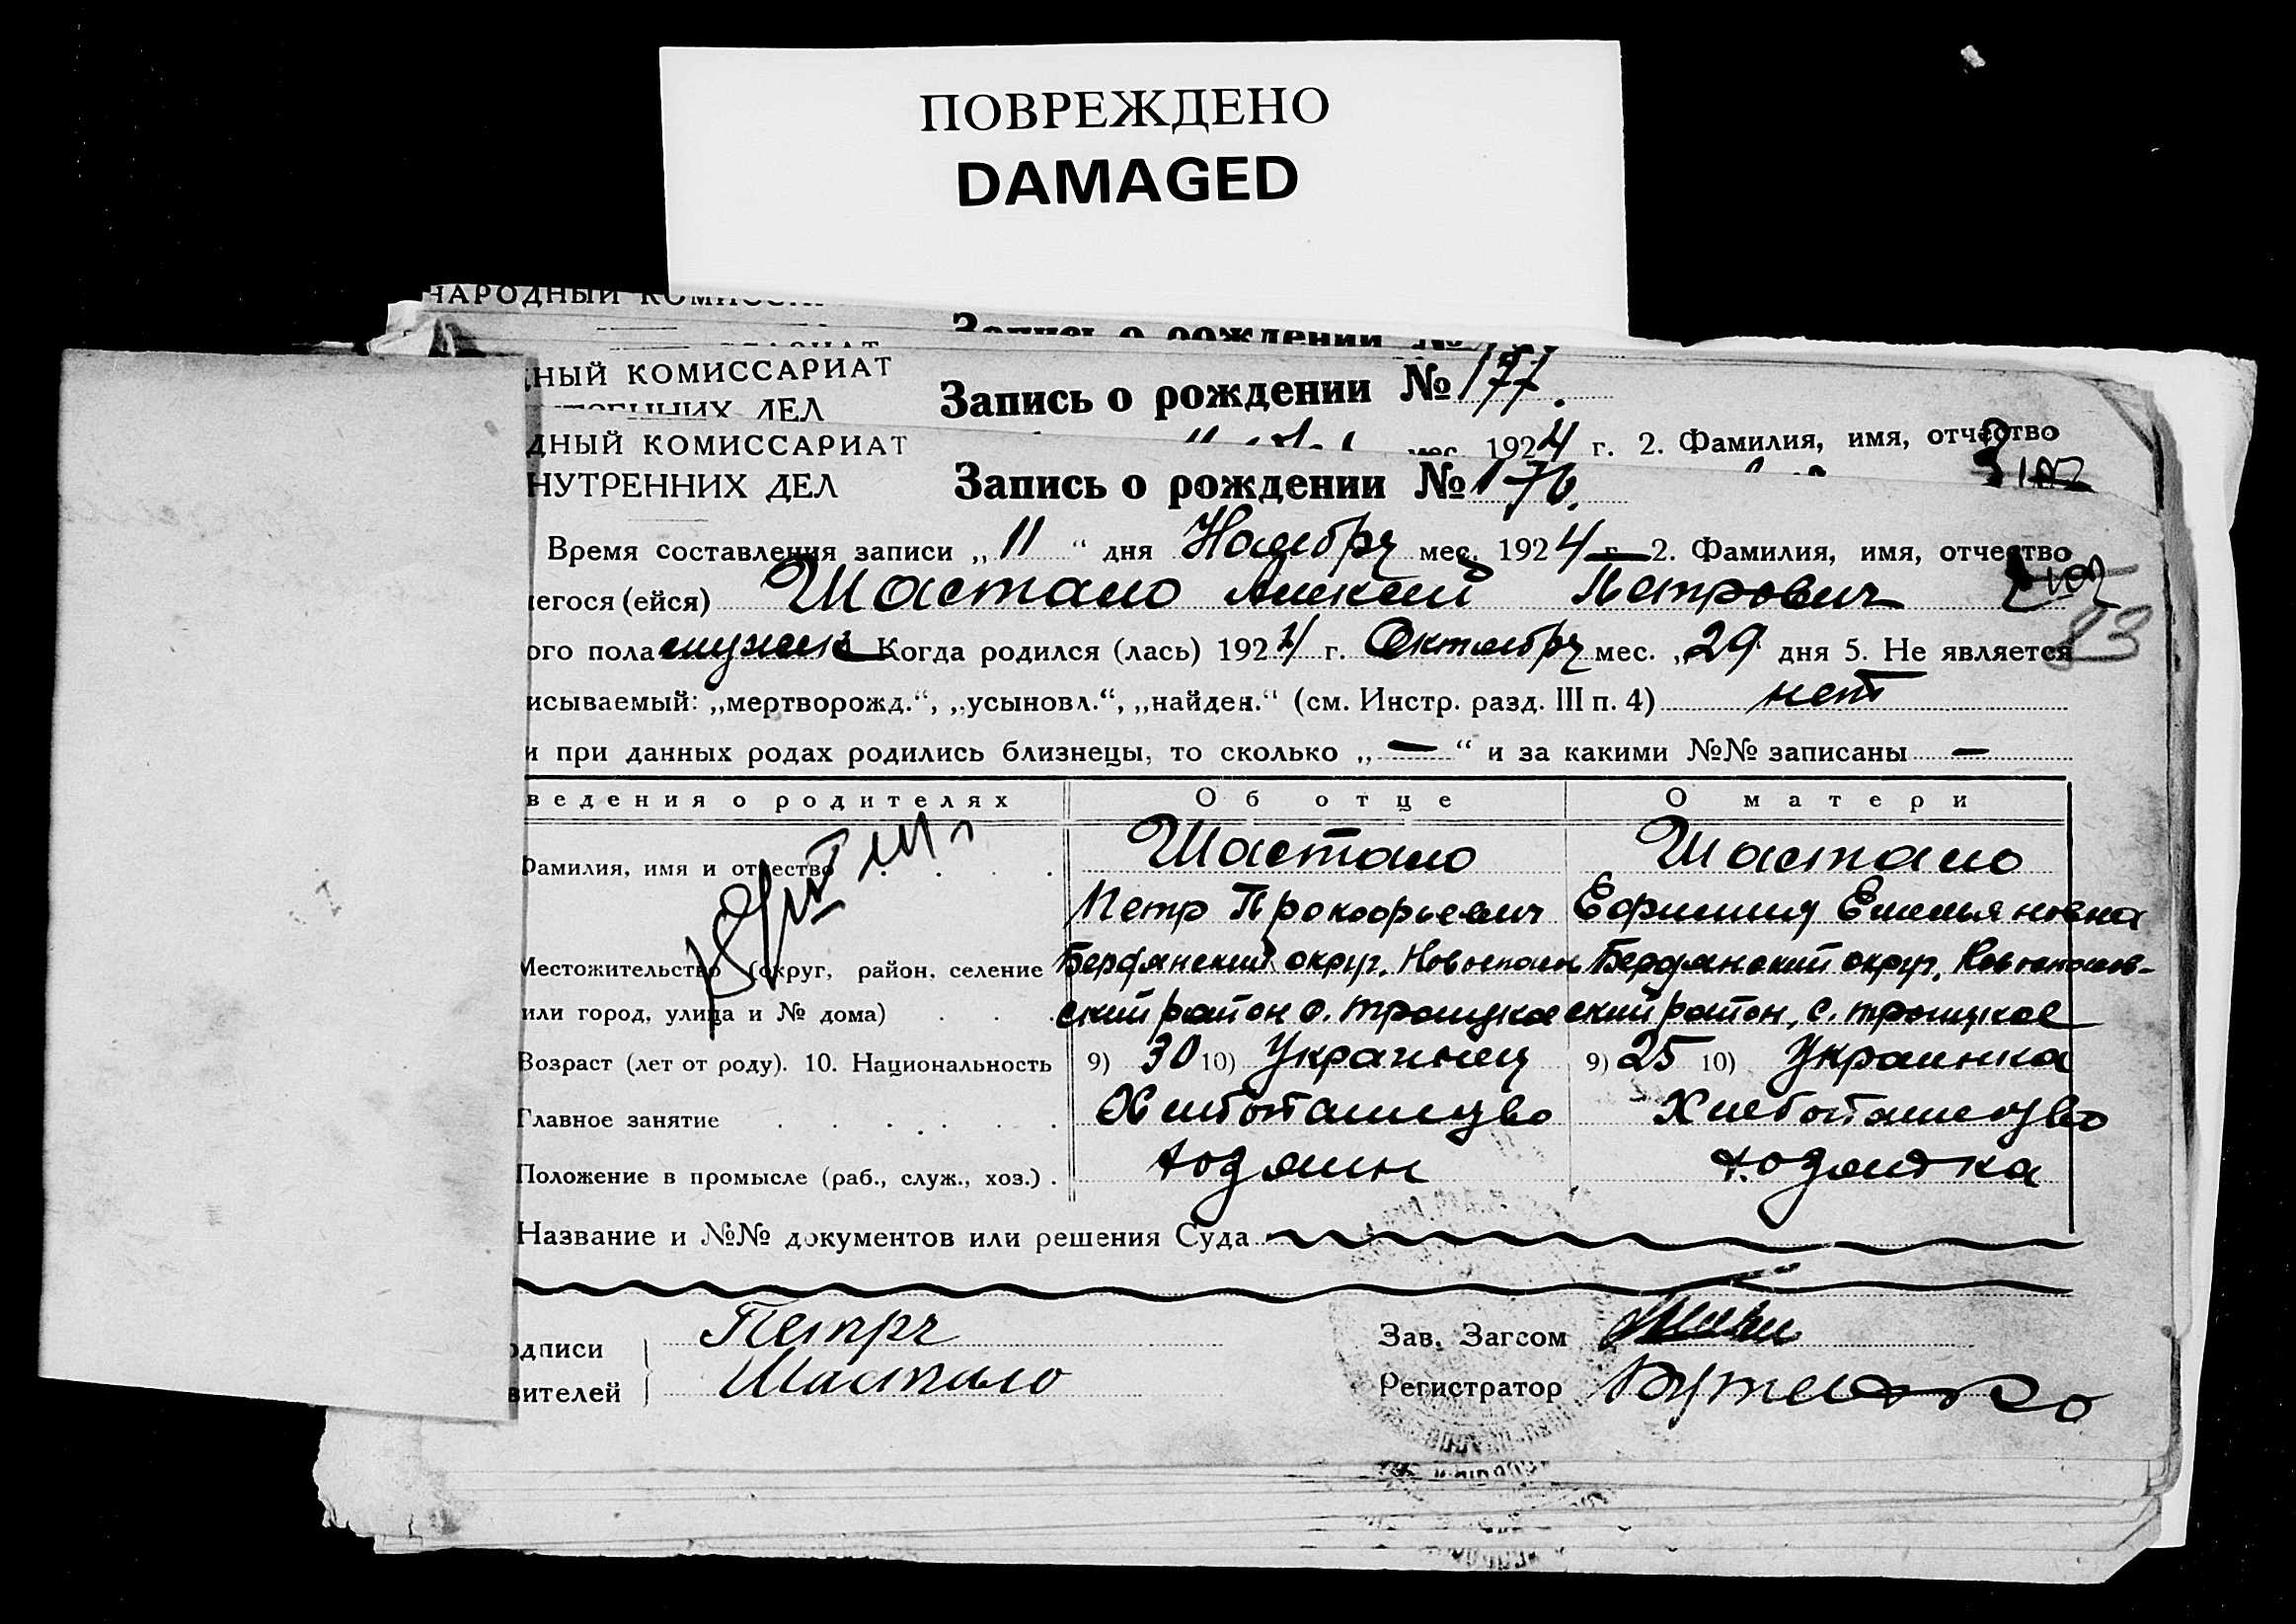 ПОВРЕЖДЕНО
DAMAGED
НАРОДНЫЙ
Запись о рождении №
НЫЙ КОМИССАРИАТ
Запись о рождении № 177.
ДЕЛ
мес. 1924 г. 2. Фамилия, имя, отчество
ДНЫЙ КОМИССАРИАТ
НУТРЕННИХ ДЕЛ
Запись о рождении № 176.
Время составления записи „11“ дня Ноября мес. 1924 г. 2. Фамилия, имя, отчество
егося (ейся) Шастало Алексей Петрович
83
ого пола мужск Когда родился (лась) 1924 г. Октября мес. „29 дня 5. Не является
исываемый: „мертворожд.“, „усыновл.“, „найден.“ (см. Инстр. разд. III п. 4) нет
и при данных родах родились близнецы, то сколько „—“ и за какими №№ записаны —
ведения о родителях Об отце О матери
Фамилия, имя и отчество Шастало Шастало
Петр Прокофьевич Ефимия Емельяновна
Местожительство (округ, район, селение Бердянский округ, Новоспасов Бердянский округ, Новоспасов-
или город, улица и № дома) ский район с. Троицкое ский район, с. Троицкое
Возраст (лет от роду). 10. Национальность 9) 30 10) Украинец 9) 25 10) Украинка
Главное занятие
Положение в промысле (раб., служ., хоз.)
Название и №№ документов или решения Суда
одписи Петр
Зав. Загсом
вителей Шастало
Регистратор Бутенко